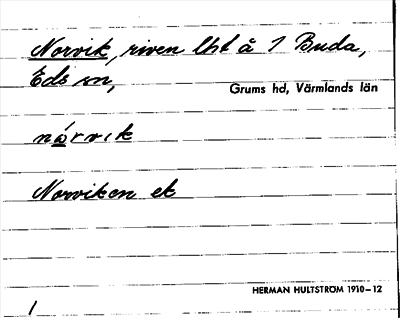 Norvik, riven lht å 1 Buda,
Eds sn,
Grums hd, Värmlands län
nårvik
Norviken ek
HERMAN HULTSTRÖM 1910–12